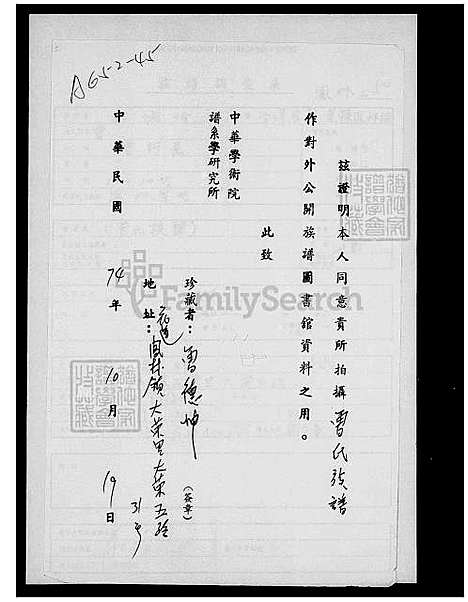 A652-45
茲證明本人同意貴所拍攝曾氏族譜
作對外公開族譜圖書館資料之用。
此致
中華學術院
譜系學研究所
珍藏者：曾德坤（簽章）
地址：花蓮鳳林鎮大榮里大榮五路
31号
中華民國74年10月19日
FamilySearch